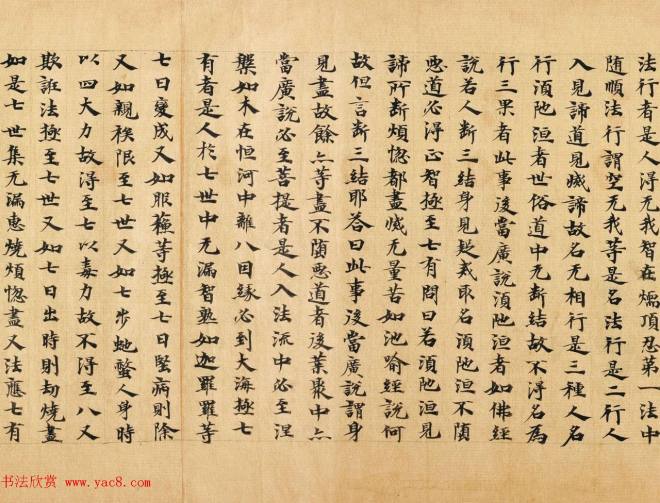 法行者是人得无我智在煗頂忍第一法中
随順法行謂空无我等是名法行是二行人
入見諦道見滅諦故名无相行是三種人名
行湏陁洹者世俗道中无断結故不得名為
行三果者此事後當廣說湏陁洹者如佛經
說若人断三結身見疑戒取名湏陁洹不墮
惡道必得正智極至七有問曰若湏陁洹見
諦所断煩惚都盡滅无量苦如池喻經說何
故但言断三結耶荅曰此事後當廣說謂身
見盡故餘亦等盡不墮惡道者後業聚中亦
當廣說必至菩提者是人入法流中必至涅
槃如木在恒河中離八因緣必到大海極七
有者是人於七世中无漏智熟如迦羅羅等
七日變成又如服蘓等極至七日堅病則除
又如親族限至七世又如七步虵螫人身時
以四大力故得至七以毒力故不得至八又
欺誑法極至七世又如七日出時則劫燒盡
如是七世集无漏惠燒煩惚盡又法應七有
书法欣赏 www.yac8.com